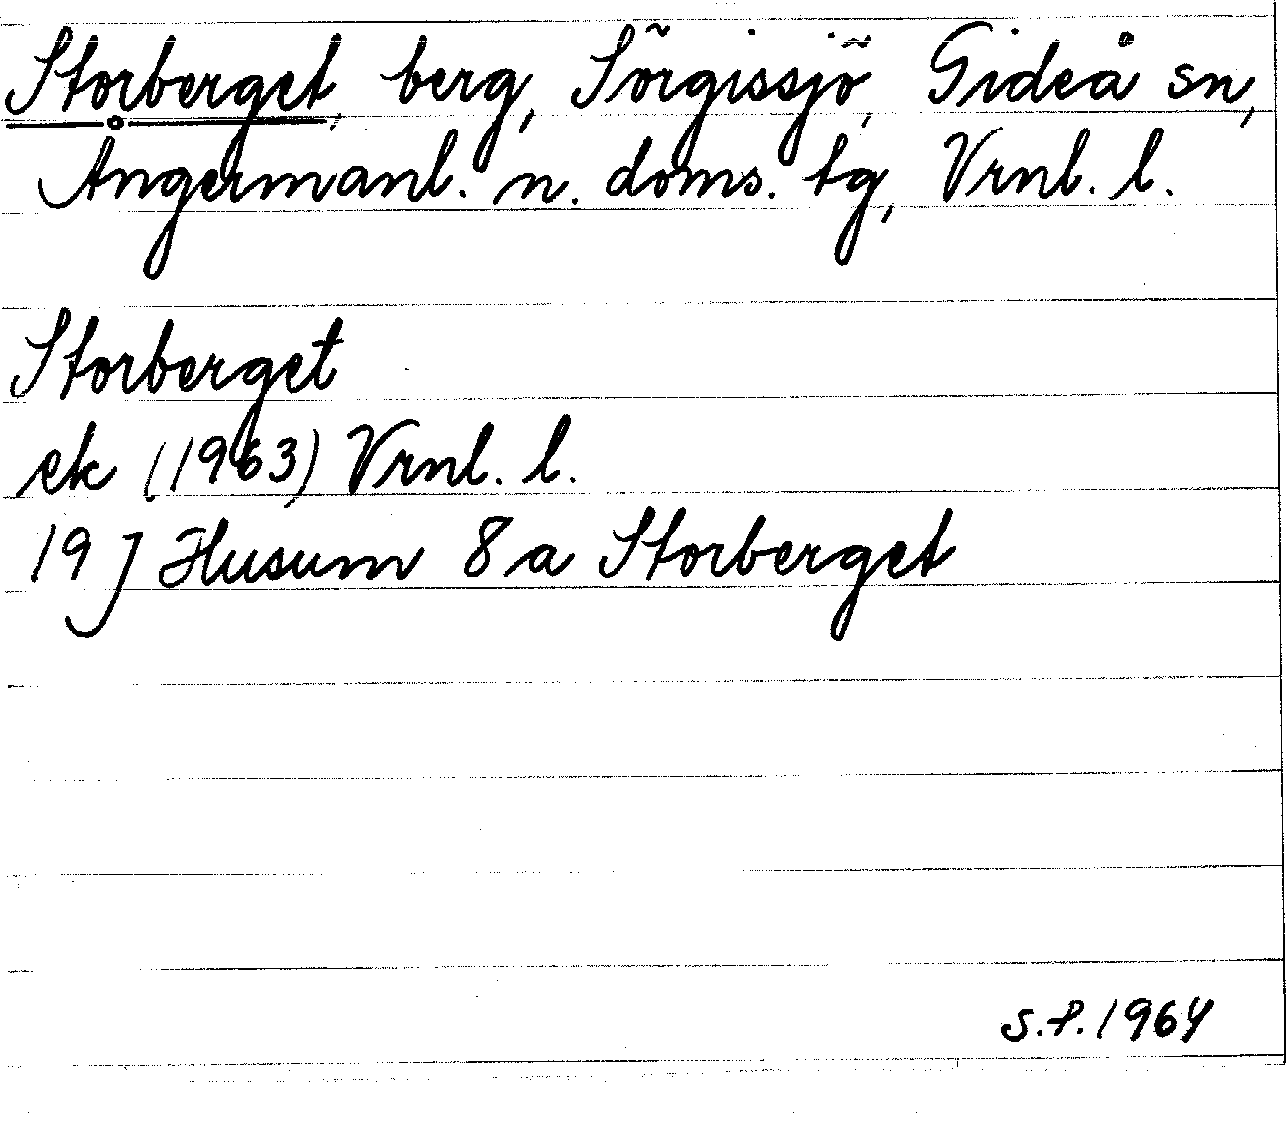 Storberget, berg, Sörgissjö, Gideå sn,
Ångermanl. n. doms. tg, Vrnl. l.
Storberget
ek (1963) Vrnl. l.
19 J Husum 8 a Storberget
S.F. 1964